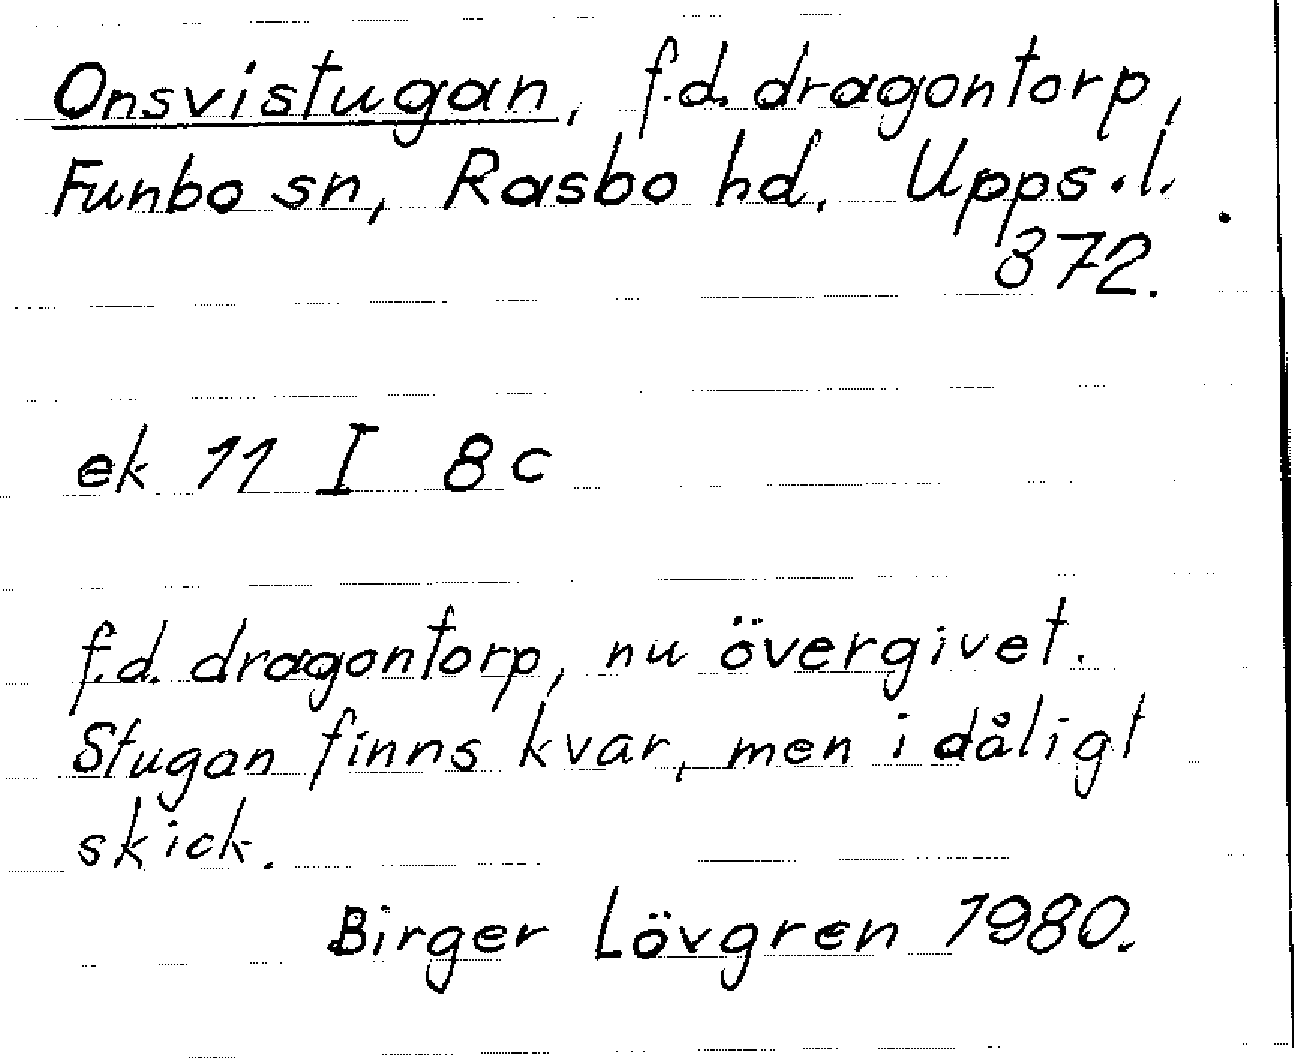 Onsvistugan, f.d. dragontorp,
Funbo sn, Rasbo hd. Upps.l.
372.
ek 11 I 8c
f.d. dragontorp, nu övergivet.
Stugan finns kvar, men i dåligt
skick.
Birger Lövgren 1980.